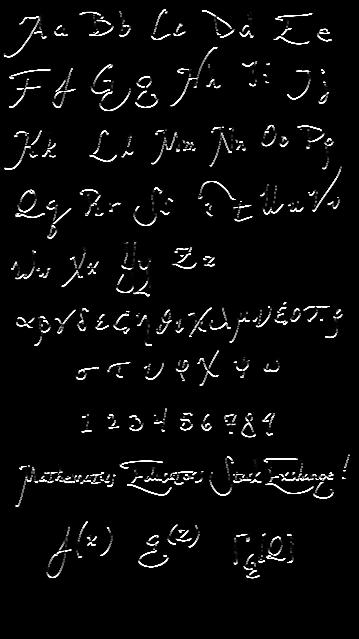 Aa Bb Cc Dd Ee
Ff Gg Hh Ii Jj
Kk Ll Mm Nn Oo Pp
Qq Rr Ss Tt Uu Vv
Ww Xx Yy Zz
αβγδεζηθικλμνξοπρ
σ τ υ φ χ ψ ω
1 2 3 4 5 6 7 8 9
Mathematics Educators Stack Exchange!
f(x) g(z) Γg[Q]